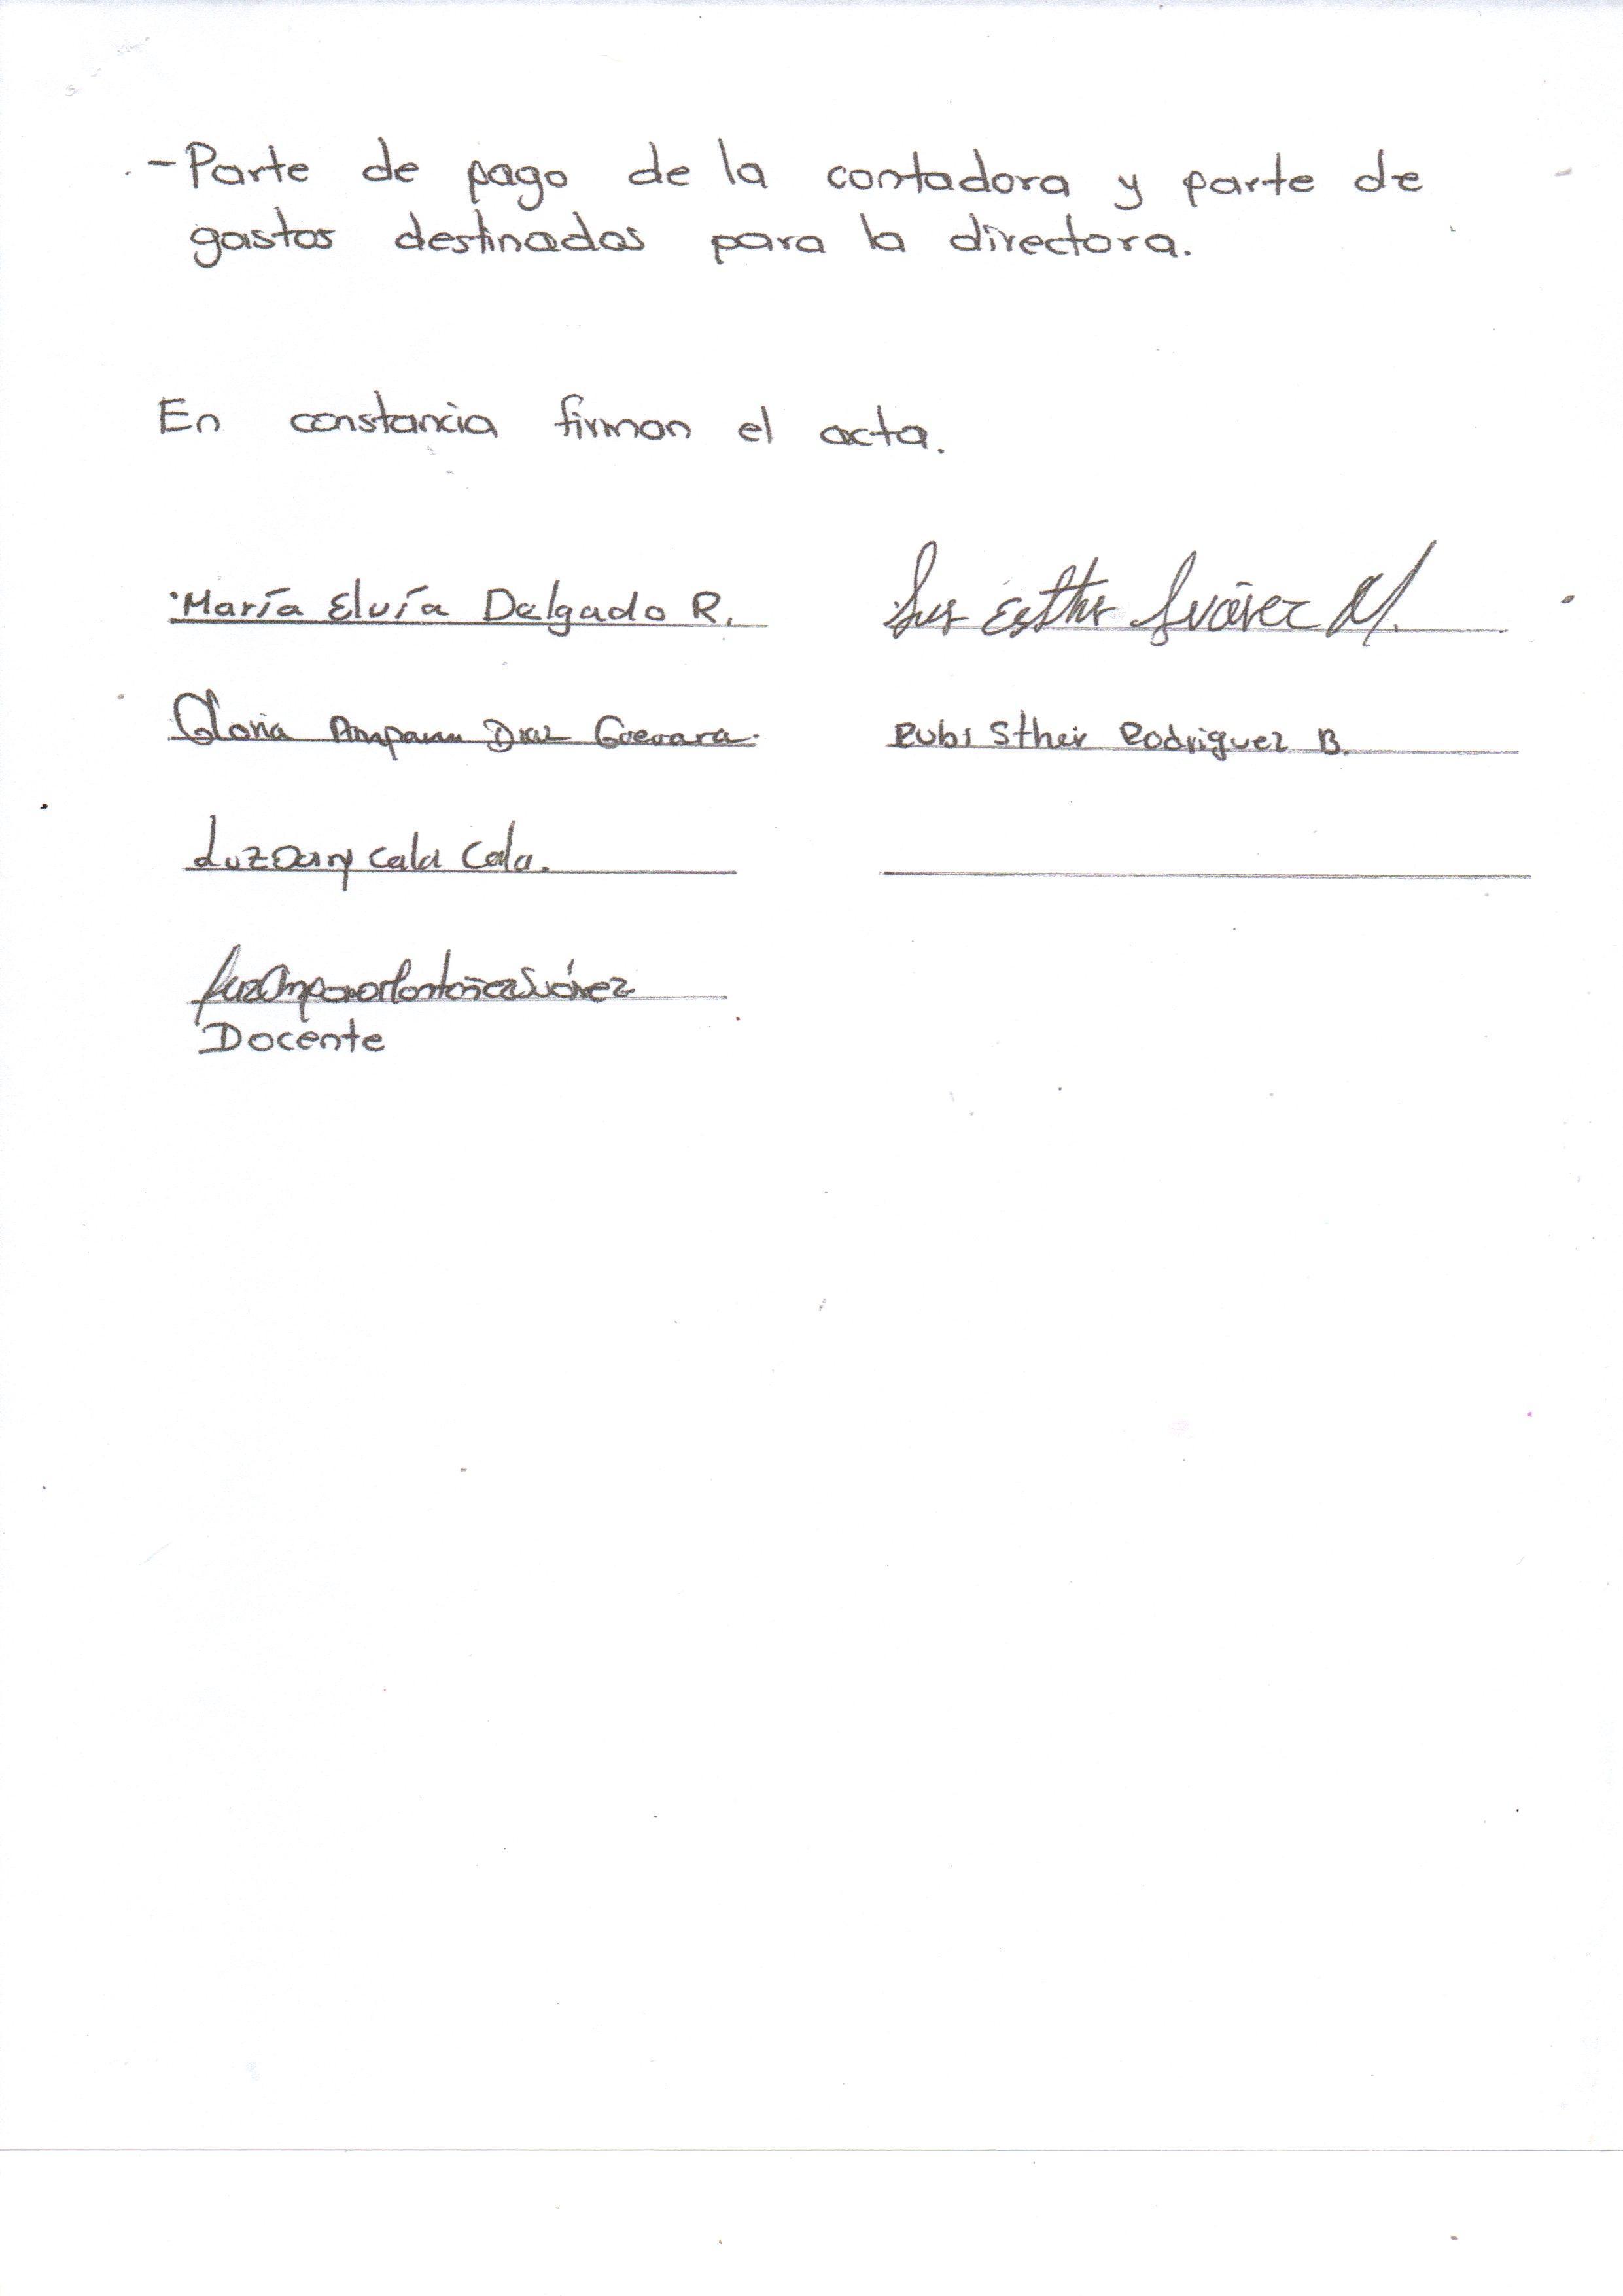 - Parte de pago de la contadora y parte de
gastos destinados para la directora.
En constancia firman el acta.
María Elvía Delgado R.
Esther Suárez M.
Gloria Amparo Diaz Guevara.
Rubi Sther Rodriguez B.
Luz Dany Cala Cala.
Luz Amparo Montañez Suárez
Docente